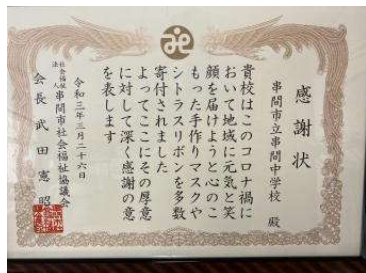 感謝状
串間市立串間中学校 殿
貴校はこのコロナ禍に
おいて地域に元気と笑
顔を届けようと心のこ
もった手作りマスクや
シトラスリボンを多数
寄付されました
よってここにその厚意
に対して深く感謝の意
を表します
令和三年三月二十六日
社会福祉法人 串間市社会福祉協議会
会長 武田憲昭